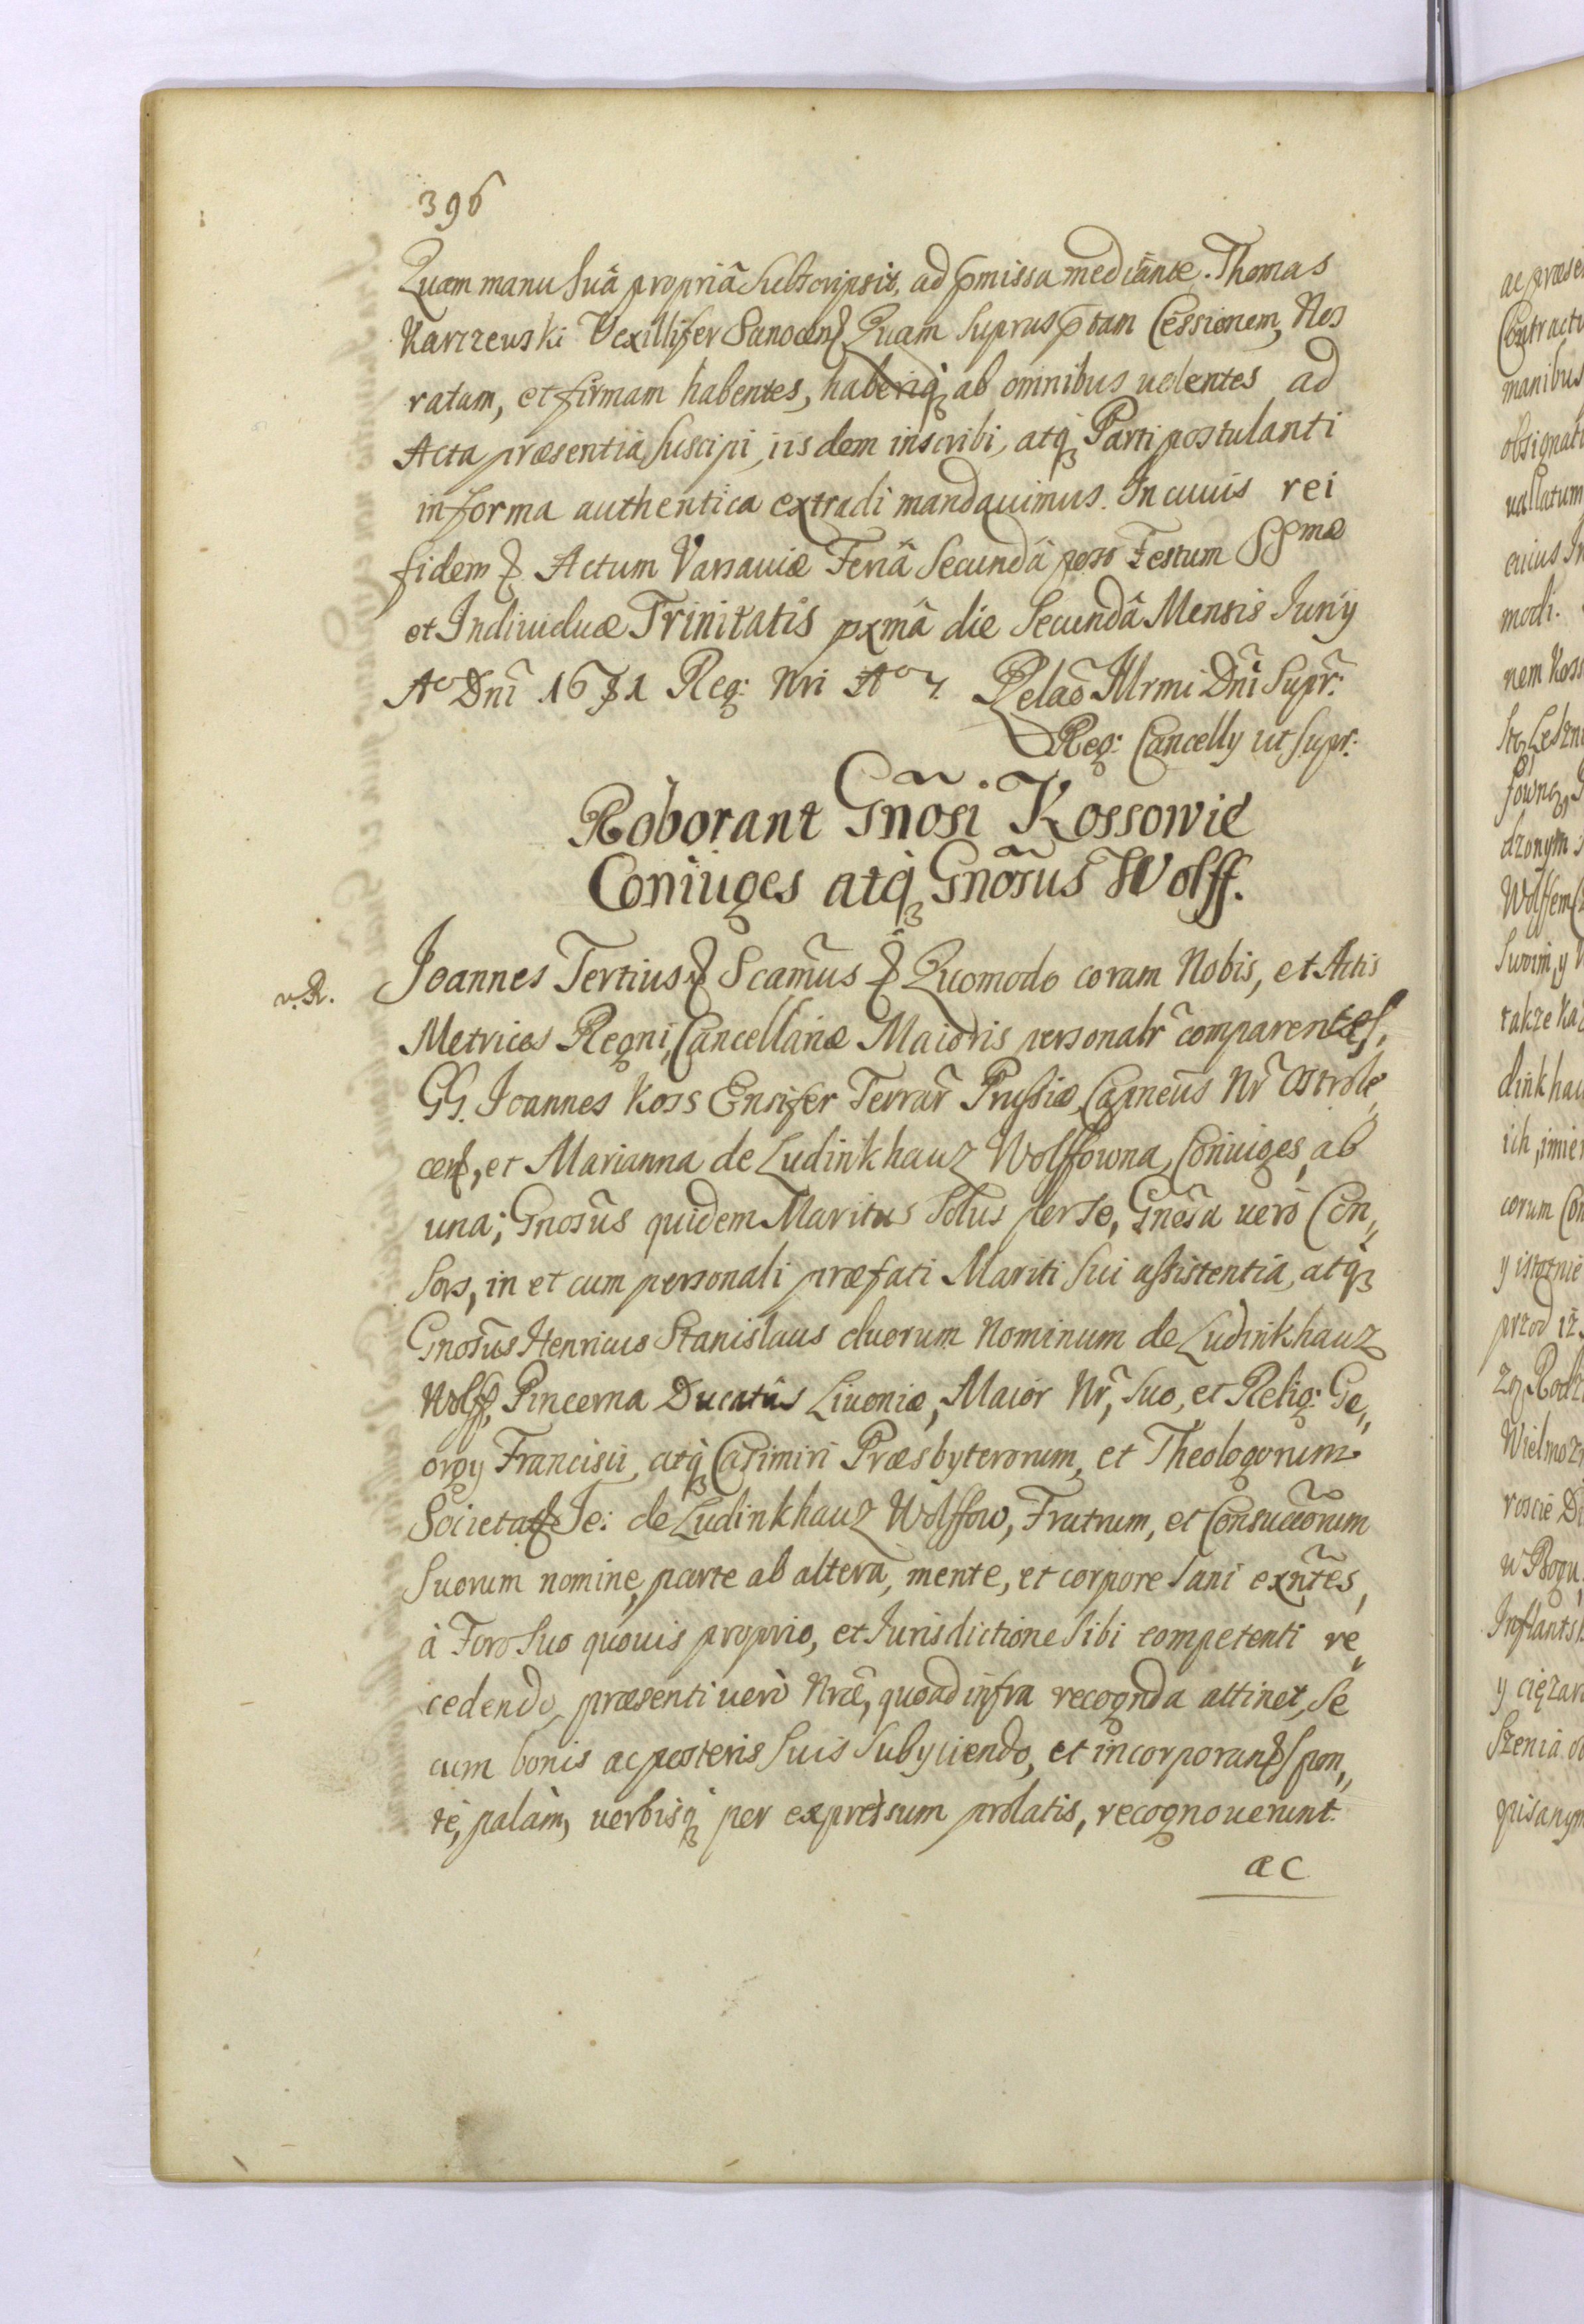 396
Quam manu suâ propriâ subscripsit, ad p̄missa mediante. Thomas
Karczewski Vexillifer Sanocen. Quam supras p̄tam Cessionem, Nos
ratam, et firmam habentes, haberiq3 ab omnibus uolentes ad
Acta præsentia suscipi, iisdem inscribi, atq3 Parti postulanti
in forma authentica extradi mandauimus. In cuuis rei
fidem &. Actum Varsauiæ Feriâ Secundâ post Festum SSmæ
et Indiuiduæ Trinitatis pxmâ die Secundâ Mensis Iunÿ
Ao Dn̄i 1681 Reg: Nri Ao 7. Relaõ Illrmi Dn̄i Supr̃:
Reg: Cancellÿ ut supr:
Roborant Gn̄osi Kossowie
Coniuges atq3 Gn̄osus Wolff.
v. R.
Joannes Tertius & Scam̃us & Quomodo coram Nobis, et Actis
Metrices Regni, Cancellariæ Maioris personalr̃ comparentes,
GG. Joannes Koss Ensifer Terrar̃ Prussiæ, Capneũs Nr̃ Ostrole„
cen, et Marianna de Ludinkhauz Wolffowna, Coniuges, ab
una; Gnosũs quidem Maritus Solus per se, Gnosã uerò Con„
sors, in et cum personali præfati Mariti sui assistentiâ, atq3
Gnosũs Henricus Stanislaus duorum Nominum de Ludinkhauz
Wolff, Pincerna Ducatûs Liuoniæ, Maior Nr̃, suo, et Relig: Ge„
orgÿ Francisci, atq3 Casimiri Præsbyterorum, et Theologorum
Societat Je: de Ludinkhauz Wolffow, Fratrum, et Consuccõrum
suorum nomine, parte ab altera, mente, et corpore sani exñtes,
à Foro suo quouis proprio, et Iurisdictione sibi competenti re„
cedendo, præsenti uerò Nræ̃, quoad infra recognda attinet, se
cum bonis ac posteris suis subÿciendo, et incorporan spon„
tè, palàm, uerbisq3 per expressum prolatis, recognouerunt.
ac